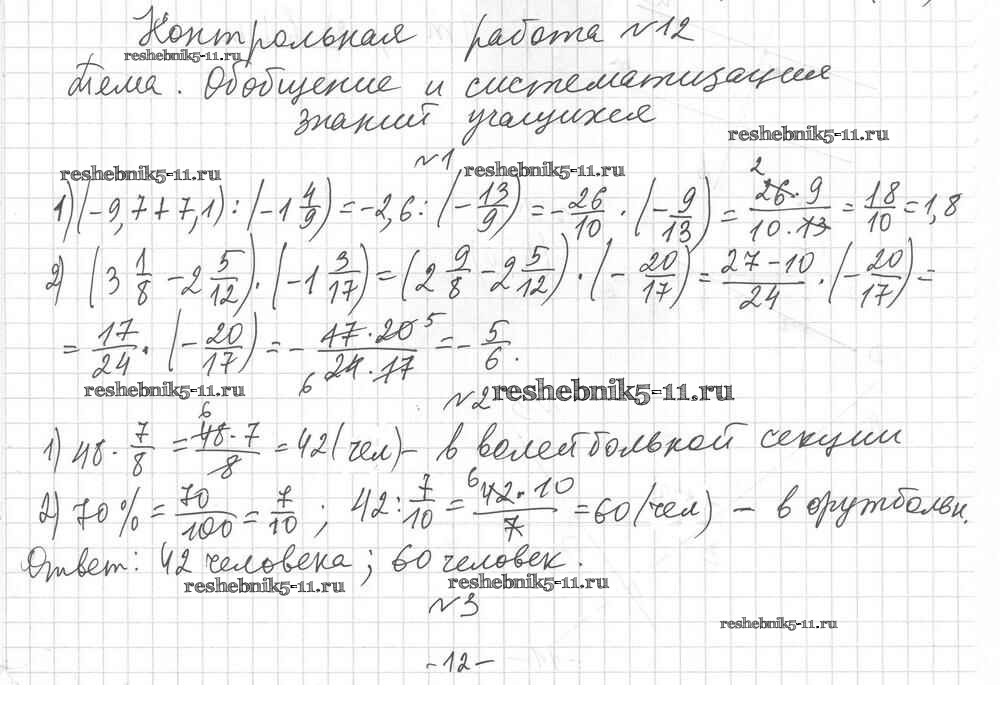 Контрольная работа №12
reshebnik5-11.ru
Тема. Обобщение и систематизация
знаний учащихся
reshebnik5-11.ru
№1
reshebnik5-11.ru reshebnik5-11.ru
1) (-9,7+7,1) : (-1 4/9) = -2,6 : (-13/9) = -26/10 · (-9/13) = 26·9/10·13 = 18/10 = 1,8
2) (3 1/8 - 2 5/12) · (-1 3/17) = (2 9/8 - 2 5/12) · (-20/17) = 27-10/24 · (-20/17) =
= 17/24 · (-20/17) = - 17·20/24·17 = - 5/6.
reshebnik5-11.ru reshebnik5-11.ru
№2
1) 48 · 7/8 = 48·7/8 = 42 (чел) - в волейбольной секции
2) 70% = 70/100 = 7/10 ; 42 : 7/10 = 42·10/7 = 60 (чел) - в футбольн.
Ответ: 42 человека; 60 человек.
reshebnik5-11.ru reshebnik5-11.ru
№3
reshebnik5-11.ru
-12-